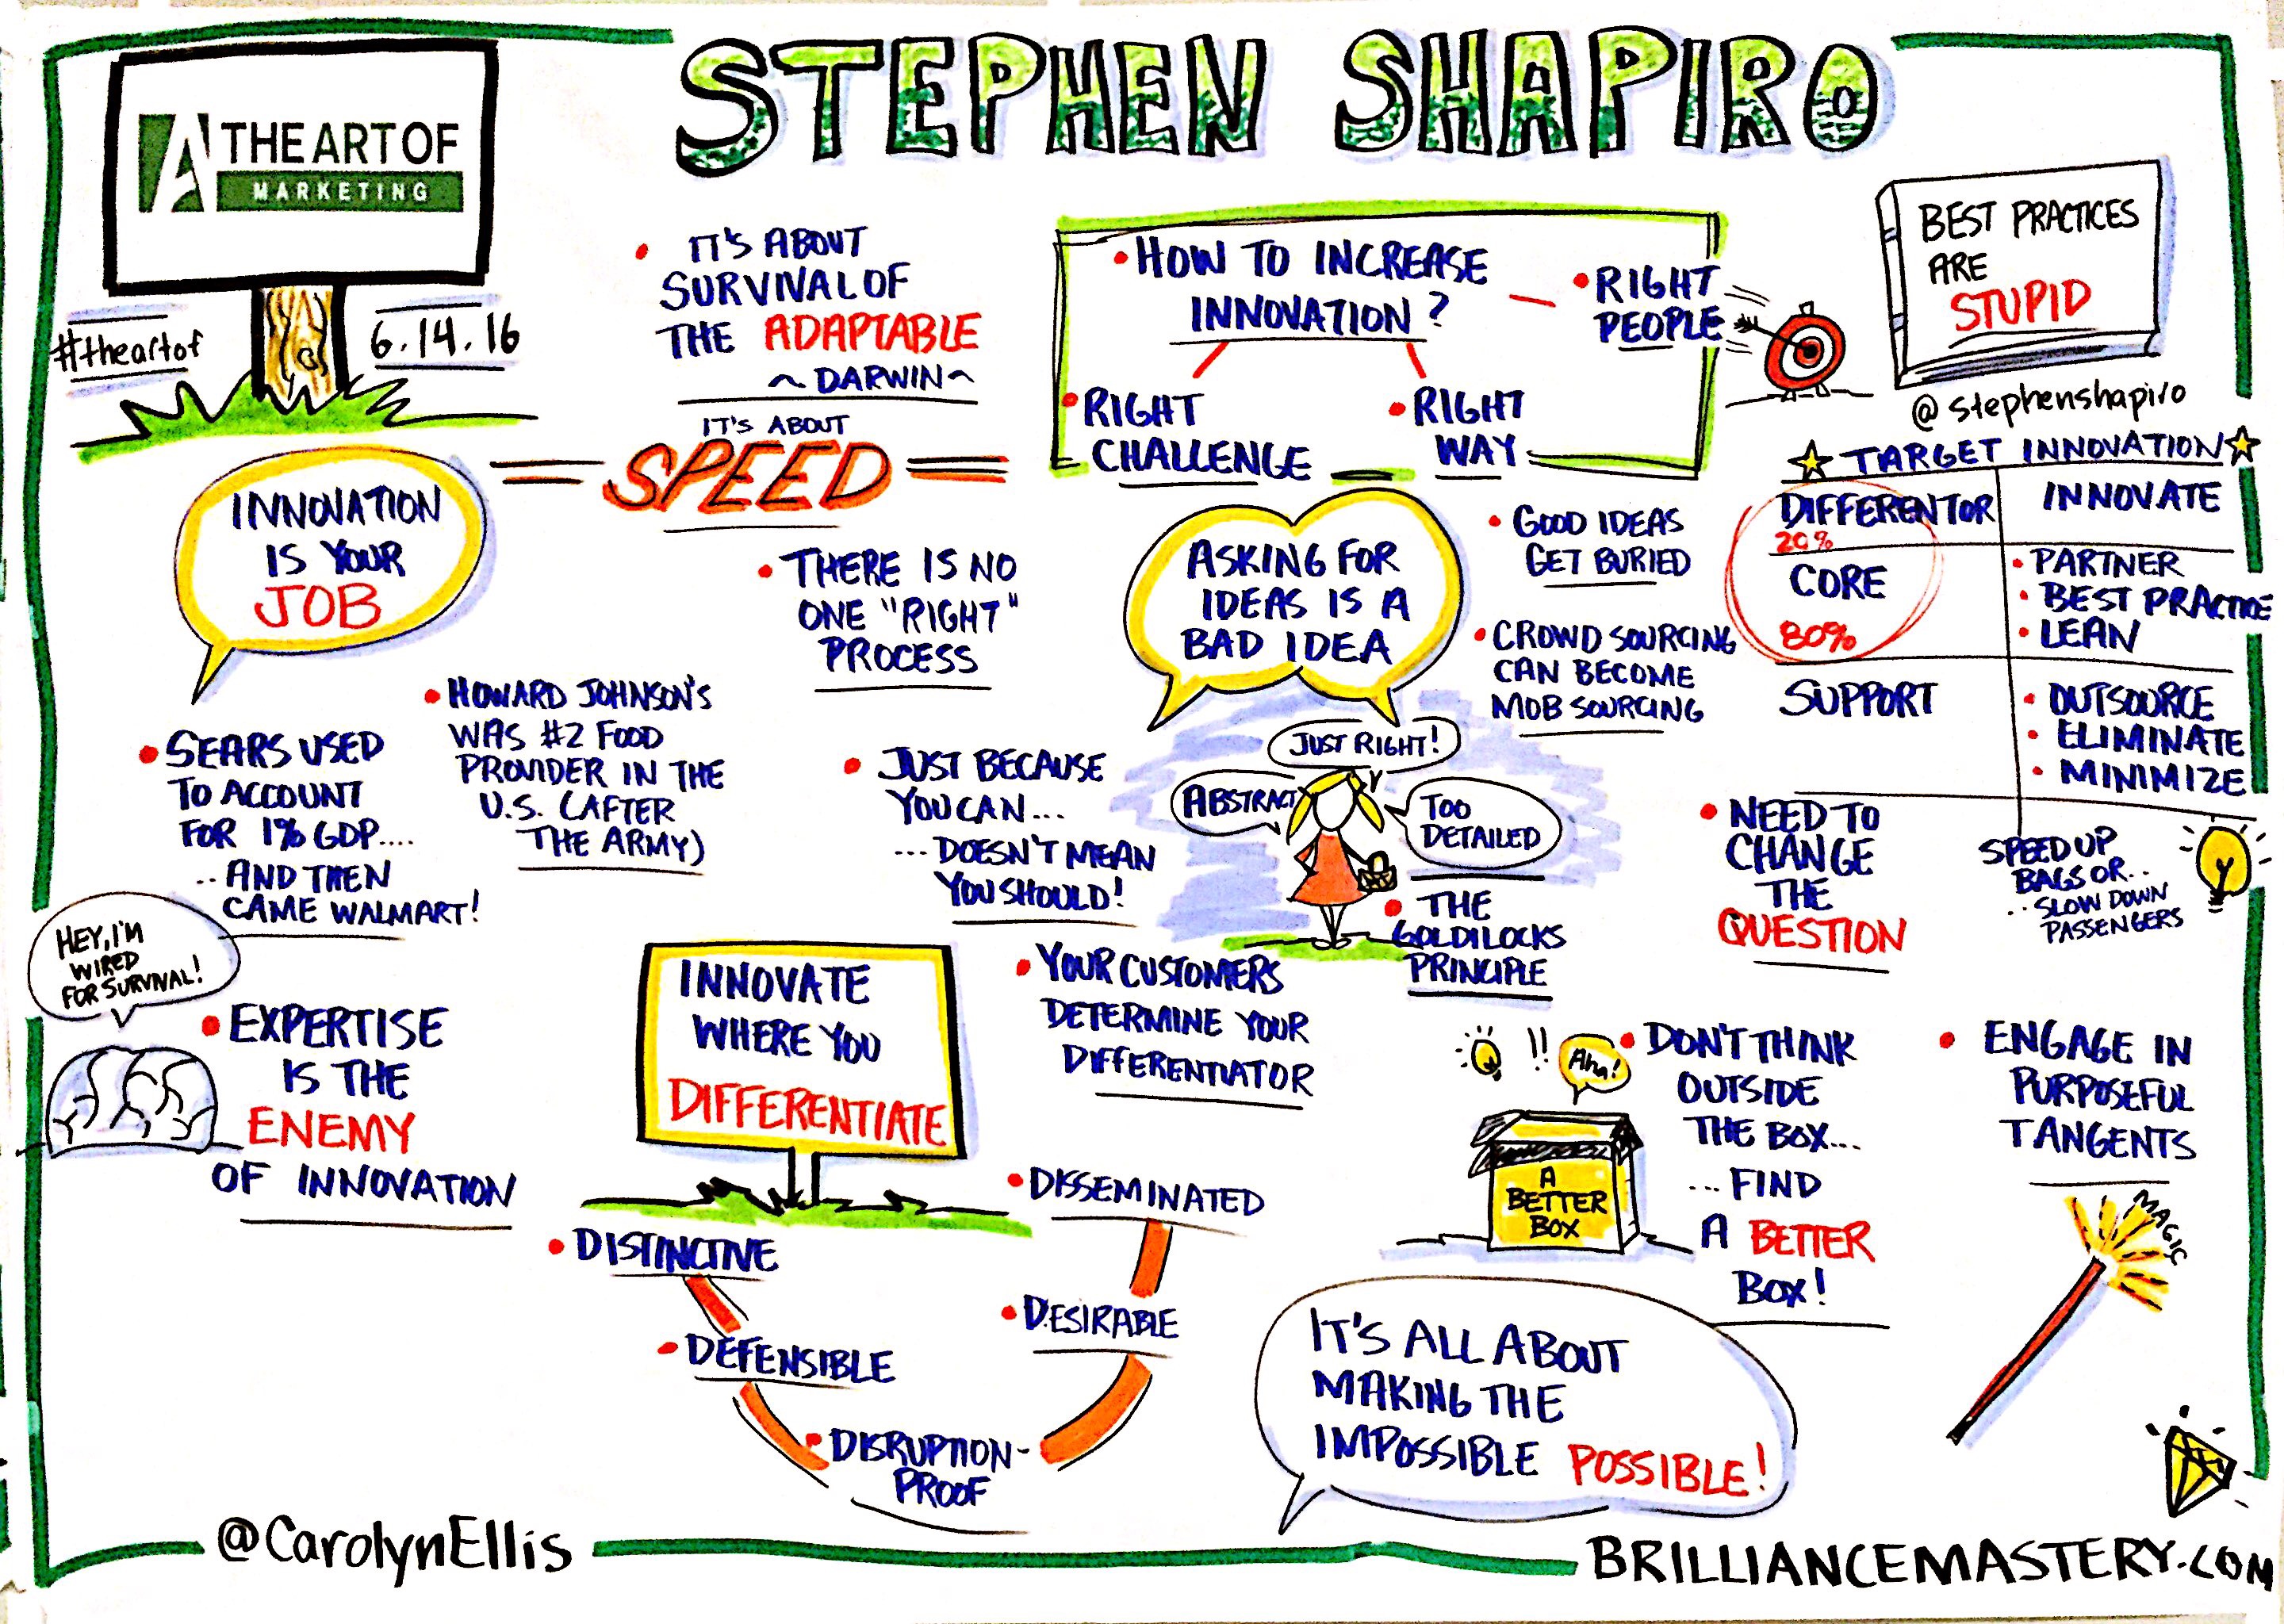 STEPHEN SHAPIRO
A THE ART OF
MARKETING
#theartof
6.14.16
• IT'S ABOUT
SURVIVAL OF
THE ADAPTABLE
~ DARWIN ~
IT'S ABOUT
SPEED
• HOW TO INCREASE
INNOVATION?
• RIGHT
PEOPLE
• RIGHT
CHALLENGE
• RIGHT
WAY
BEST PRACTICES
ARE
STUPID
@stephenshapiro
INNOVATION
IS YOUR
JOB
• THERE IS NO
ONE "RIGHT"
PROCESS
ASKING FOR
IDEAS IS A
BAD IDEA
• GOOD IDEAS
GET BURIED
• CROWD SOURCING
CAN BECOME
MOB SOURCING
TARGET INNOVATION
DIFFERENTOR
20%
INNOVATE
CORE
80%
• PARTNER
• BEST PRACTICE
• LEAN
SUPPORT
• OUTSOURCE
• ELIMINATE
• MINIMIZE
• SEARS USED
TO ACCOUNT
FOR 1% GDP....
.. AND THEN
CAME WALMART!
• HOWARD JOHNSON'S
WAS #2 FOOD
PROVIDER IN THE
U.S. (AFTER
THE ARMY)
• JUST BECAUSE
YOU CAN...
... DOESN'T MEAN
YOU SHOULD!
JUST RIGHT!
ABSTRACT
TOO
DETAILED
• THE
GOLDILOCKS
PRINCIPLE
• NEED TO
CHANGE
THE
QUESTION
SPEED UP
BAGS OR..
..SLOW DOWN
PASSENGERS
HEY, I'M
WIRED
FOR SURVIVAL!
• EXPERTISE
IS THE
ENEMY
OF INNOVATION
INNOVATE
WHERE YOU
DIFFERENTIATE
• YOUR CUSTOMERS
DETERMINE YOUR
DIFFERENTIATOR
• DISTINCTIVE
• DEFENSIBLE
• DISRUPTION-
PROOF
• DESIRABLE
• DISSEMINATED
!!
Aha!
A
BETTER
BOX
• DON'T THINK
OUTSIDE
THE BOX...
... FIND
A BETTER
BOX!
• ENGAGE IN
PURPOSEFUL
TANGENTS
MAGIC
IT'S ALL ABOUT
MAKING THE
IMPOSSIBLE POSSIBLE!
@CarolynEllis
BRILLIANCEMASTERY.COM